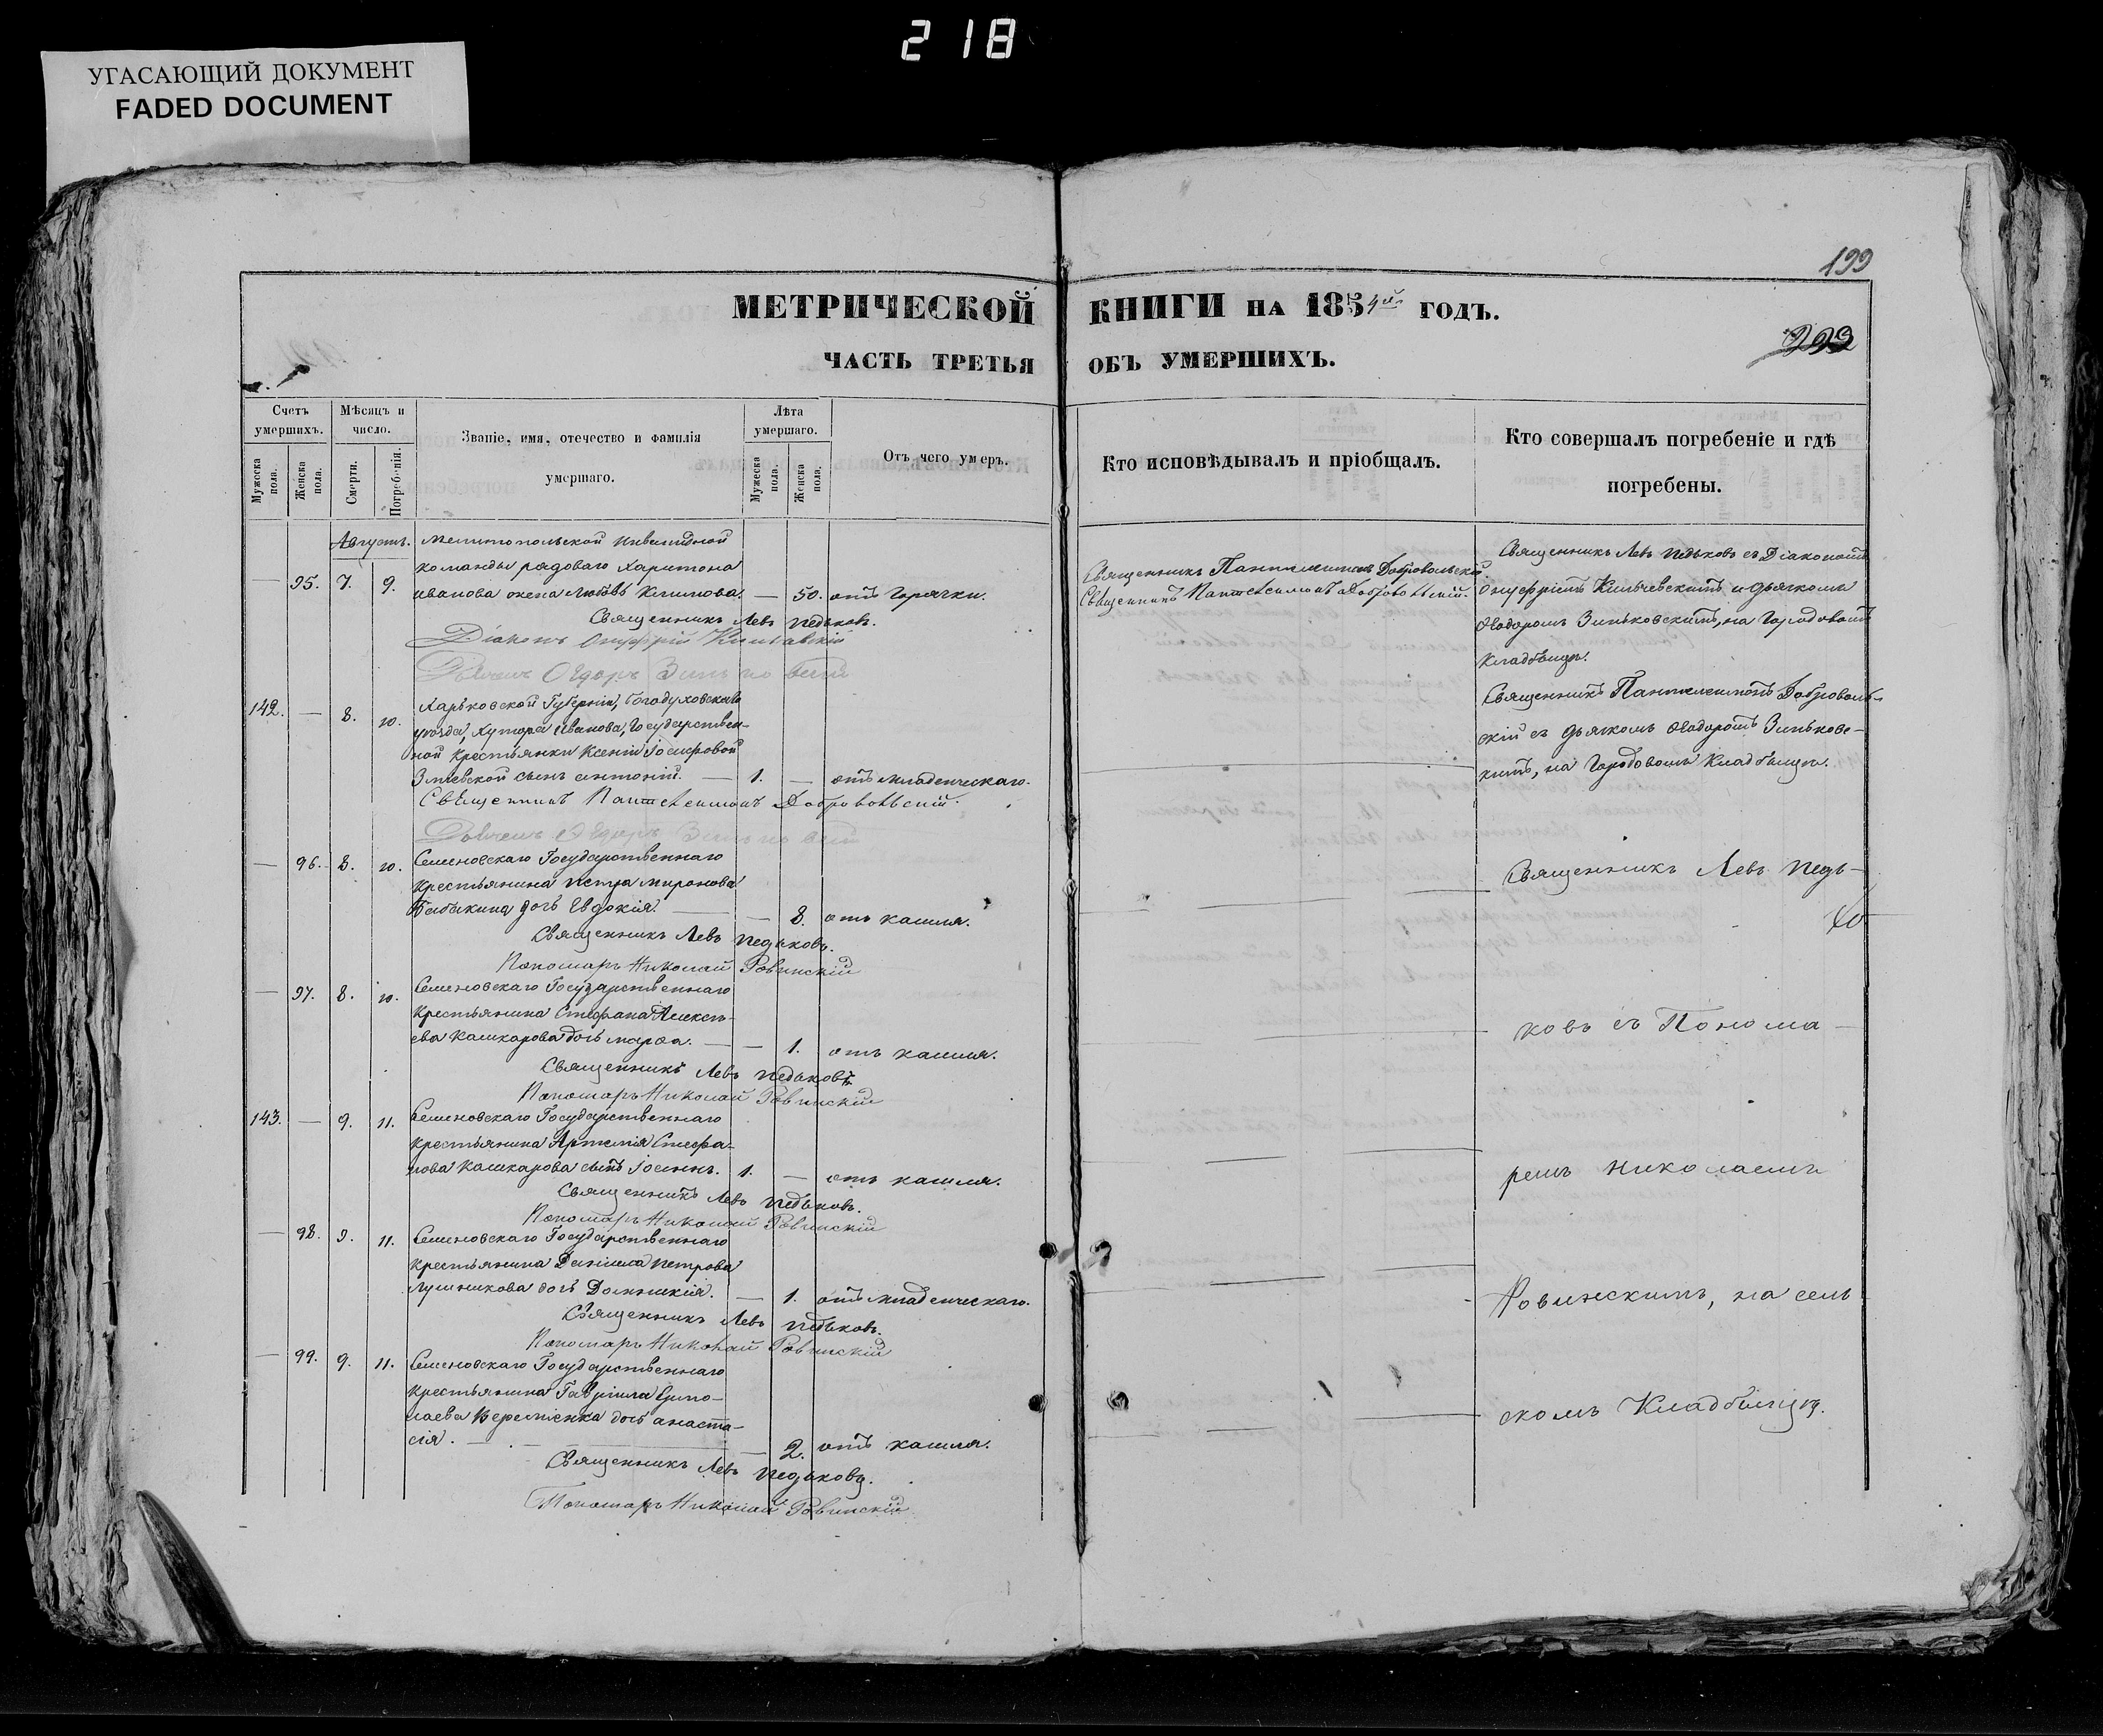 218
УГАСАЮЩИЙ ДОКУМЕНТ
FADED DOCUMENT
199
МЕТРИЧЕСКОЙ КНИГИ НА 1854й ГОДЪ.
ЧАСТЬ ТРЕТЬЯ ОБЪ УМЕРШИХЪ.
Счетъ умершихъ.
Мужеска пола.
Женска пола.
Мѣсяцъ и число.
Смерти.
Погребенія.
Званіе, имя, отечество и фамилія
умершаго.
Лѣта умершаго.
Мужеска пола.
Женска пола.
Отъ чего умеръ.
Кто исповѣдывалъ и пріобщалъ.
Кто совершалъ погребеніе и гдѣ
погребены.
Августъ. Мелитопольской инвалидной
команды рядоваго Харитона
— 95. 7. 9. Иванова жена Любовь Климова. — 50. отъ горячки.
Священникъ Левъ Педьковъ.
Діаконъ Онуфрій
Дьячекъ Ѳедоръ
Священникъ Пантелеимонъ Добровольскій
Священникъ Пантелеимонъ Добровольскій.
Священникъ Левъ Педьковъ съ Діакономъ
Онуфріемъ и дьячкомъ
Ѳеодоромъ Зиньковскимъ, на Городовомъ
Кладбищѣ.
142. — 8. 10. Харьковской Губерніи, Богодуховскаго
уѣзда, Хутора Иванова, Государствен-
ной крестьянки Ксеніи Іосифовой
Зміевской сынъ Антоній. — 1. — отъ младенческаго.
Священникъ Пантелеимонъ Добровольскій.
Дьячекъ Ѳедоръ
Священникъ Пантелеимонъ Доброволь-
скій съ дьячкомъ Ѳеодоромъ Зиньковс-
кимъ, на Городовомъ Кладбищѣ.
— 96. 8. 10. Семеновскаго Государственнаго
крестьянина Петра Миронова
Бабакина дочь Евдокія. — — 8. отъ кашля.
Священникъ Левъ Педьковъ.
Пономарь Николай Ровинскій
— 97. 8. 10. Семеновскаго Государственнаго
крестьянина Стефана Алексѣ-
ева Кашкарова дочь Марѳа. — — 1. отъ кашля.
Священникъ Левъ Педьковъ
Пономарь Николай Ровинскій
143. — 9. 11. Семеновскаго Государственнаго
крестьянина Артемія Стефа-
нова Кашкарова сынъ 1. — отъ кашля.
Священникъ Левъ Педьковъ.
Пономарь Николай Ровинскій
— 98. 9. 11. Семеновскаго Государственнаго
крестьянина Даніила Петрова
Лушникова дочь Домникія. — 1. отъ младенческаго.
Священникъ Левъ Педьковъ.
Пономарь Николай Ровинскій
— 99. 9. 11. Семеновскаго Государственнаго
крестьянина Гавріила
дочь Анаста-
сія. — — — 2. отъ кашля.
Священникъ Левъ Педьковъ.
Пономарь Николай Ровинскій
Священникъ Левъ Педь-
ковъ съ Понома-
ремъ Николаемъ
Ровинскимъ, на сель
скомъ Кладбищѣ.